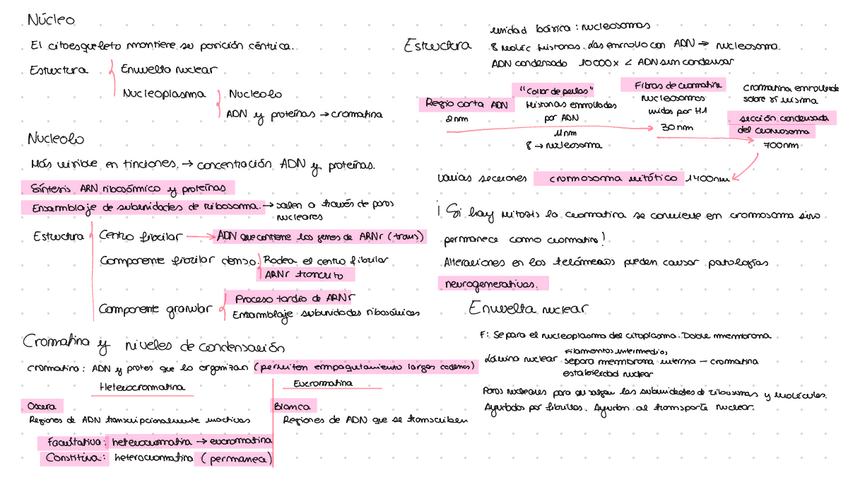 Núcleo
El citoesqueleto mantiene su posición céntrica.
Estructura
Envuelta nuclear
Nucleoplasma
Nucleolo
ADN y proteínas → cromatina
Nucleolo
Más visible en tinciones. → concentración ADN y proteínas.
Síntesis ARN ribosómico y proteínas
Ensamblaje de subunidades de ribosoma. → salen a través de poros
nucleares
Estructura
Centro fibrilar → ADN que contiene los genes de ARNr (trans)
Componente fibrilar denso. Rodea el centro fibrilar
ARNr transcrito
Componente granular
Proceso tardío de ARNr
Ensamblaje subunidades ribosómicas
Cromatina y niveles de condensación
cromatina: ADN y protes que la organizan (permiten empaquetamiento largas cadenas)
Heterocromatina
Eucromatina
Oscura
Blanca
Regiones de ADN transcripcionalmente inactivas
Regiones de ADN que se transcriben
Facultativa: heterocromatina → eucromatina
Constitiva: heterocromatina (permanece)
Estructura
unidad básica: nucleosomas
8 molec histonas. las enrrolla con ADN → nucleosoma.
ADN condensado 10000x < ADN sin condensar
Regio corta ADN
2nm
"Collar de perlas"
Histonas enrrolladas
por ADN
11nm
8 → nucleosoma
Fibras de cromatina
nucleosomas
unidos por H1
30nm
cromatina enrrollada
sobre sí misma
sección condensada
del cromosoma
700nm
varias secciones cromosoma mitótico 1400nm
¡ Si hay mitosis la cromatina se convierte en cromosoma sino
permanece como cromatina!
Alteraciones en los telómeros pueden causar patologías
neurogenerativas.
Envuelta nuclear
F: Separa el nucleoplasma del citoplasma. Doble mnembrana
Lámina nuclear
filamentos intermedios
separa membrana interna — cromatina
estabilidad nuclear
Poros nucleares para que salgan las subunidades d ribosomas y moléculas.
Ayudados por fibrillas. Ayudan al transporte nuclear.